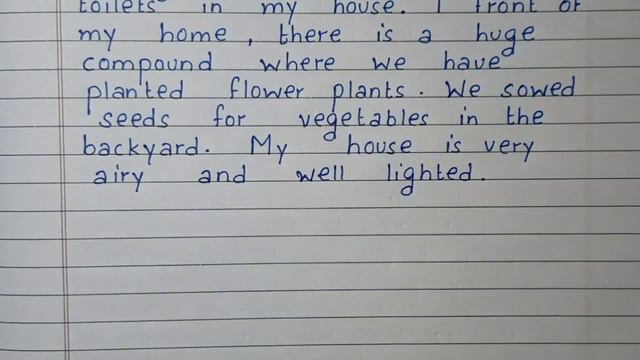 toilets in my house. I front of
my home, there is a huge
compound where we have
planted flower plants. We sowed
seeds for vegetables in the
backyard. My house is very
airy and well lighted.